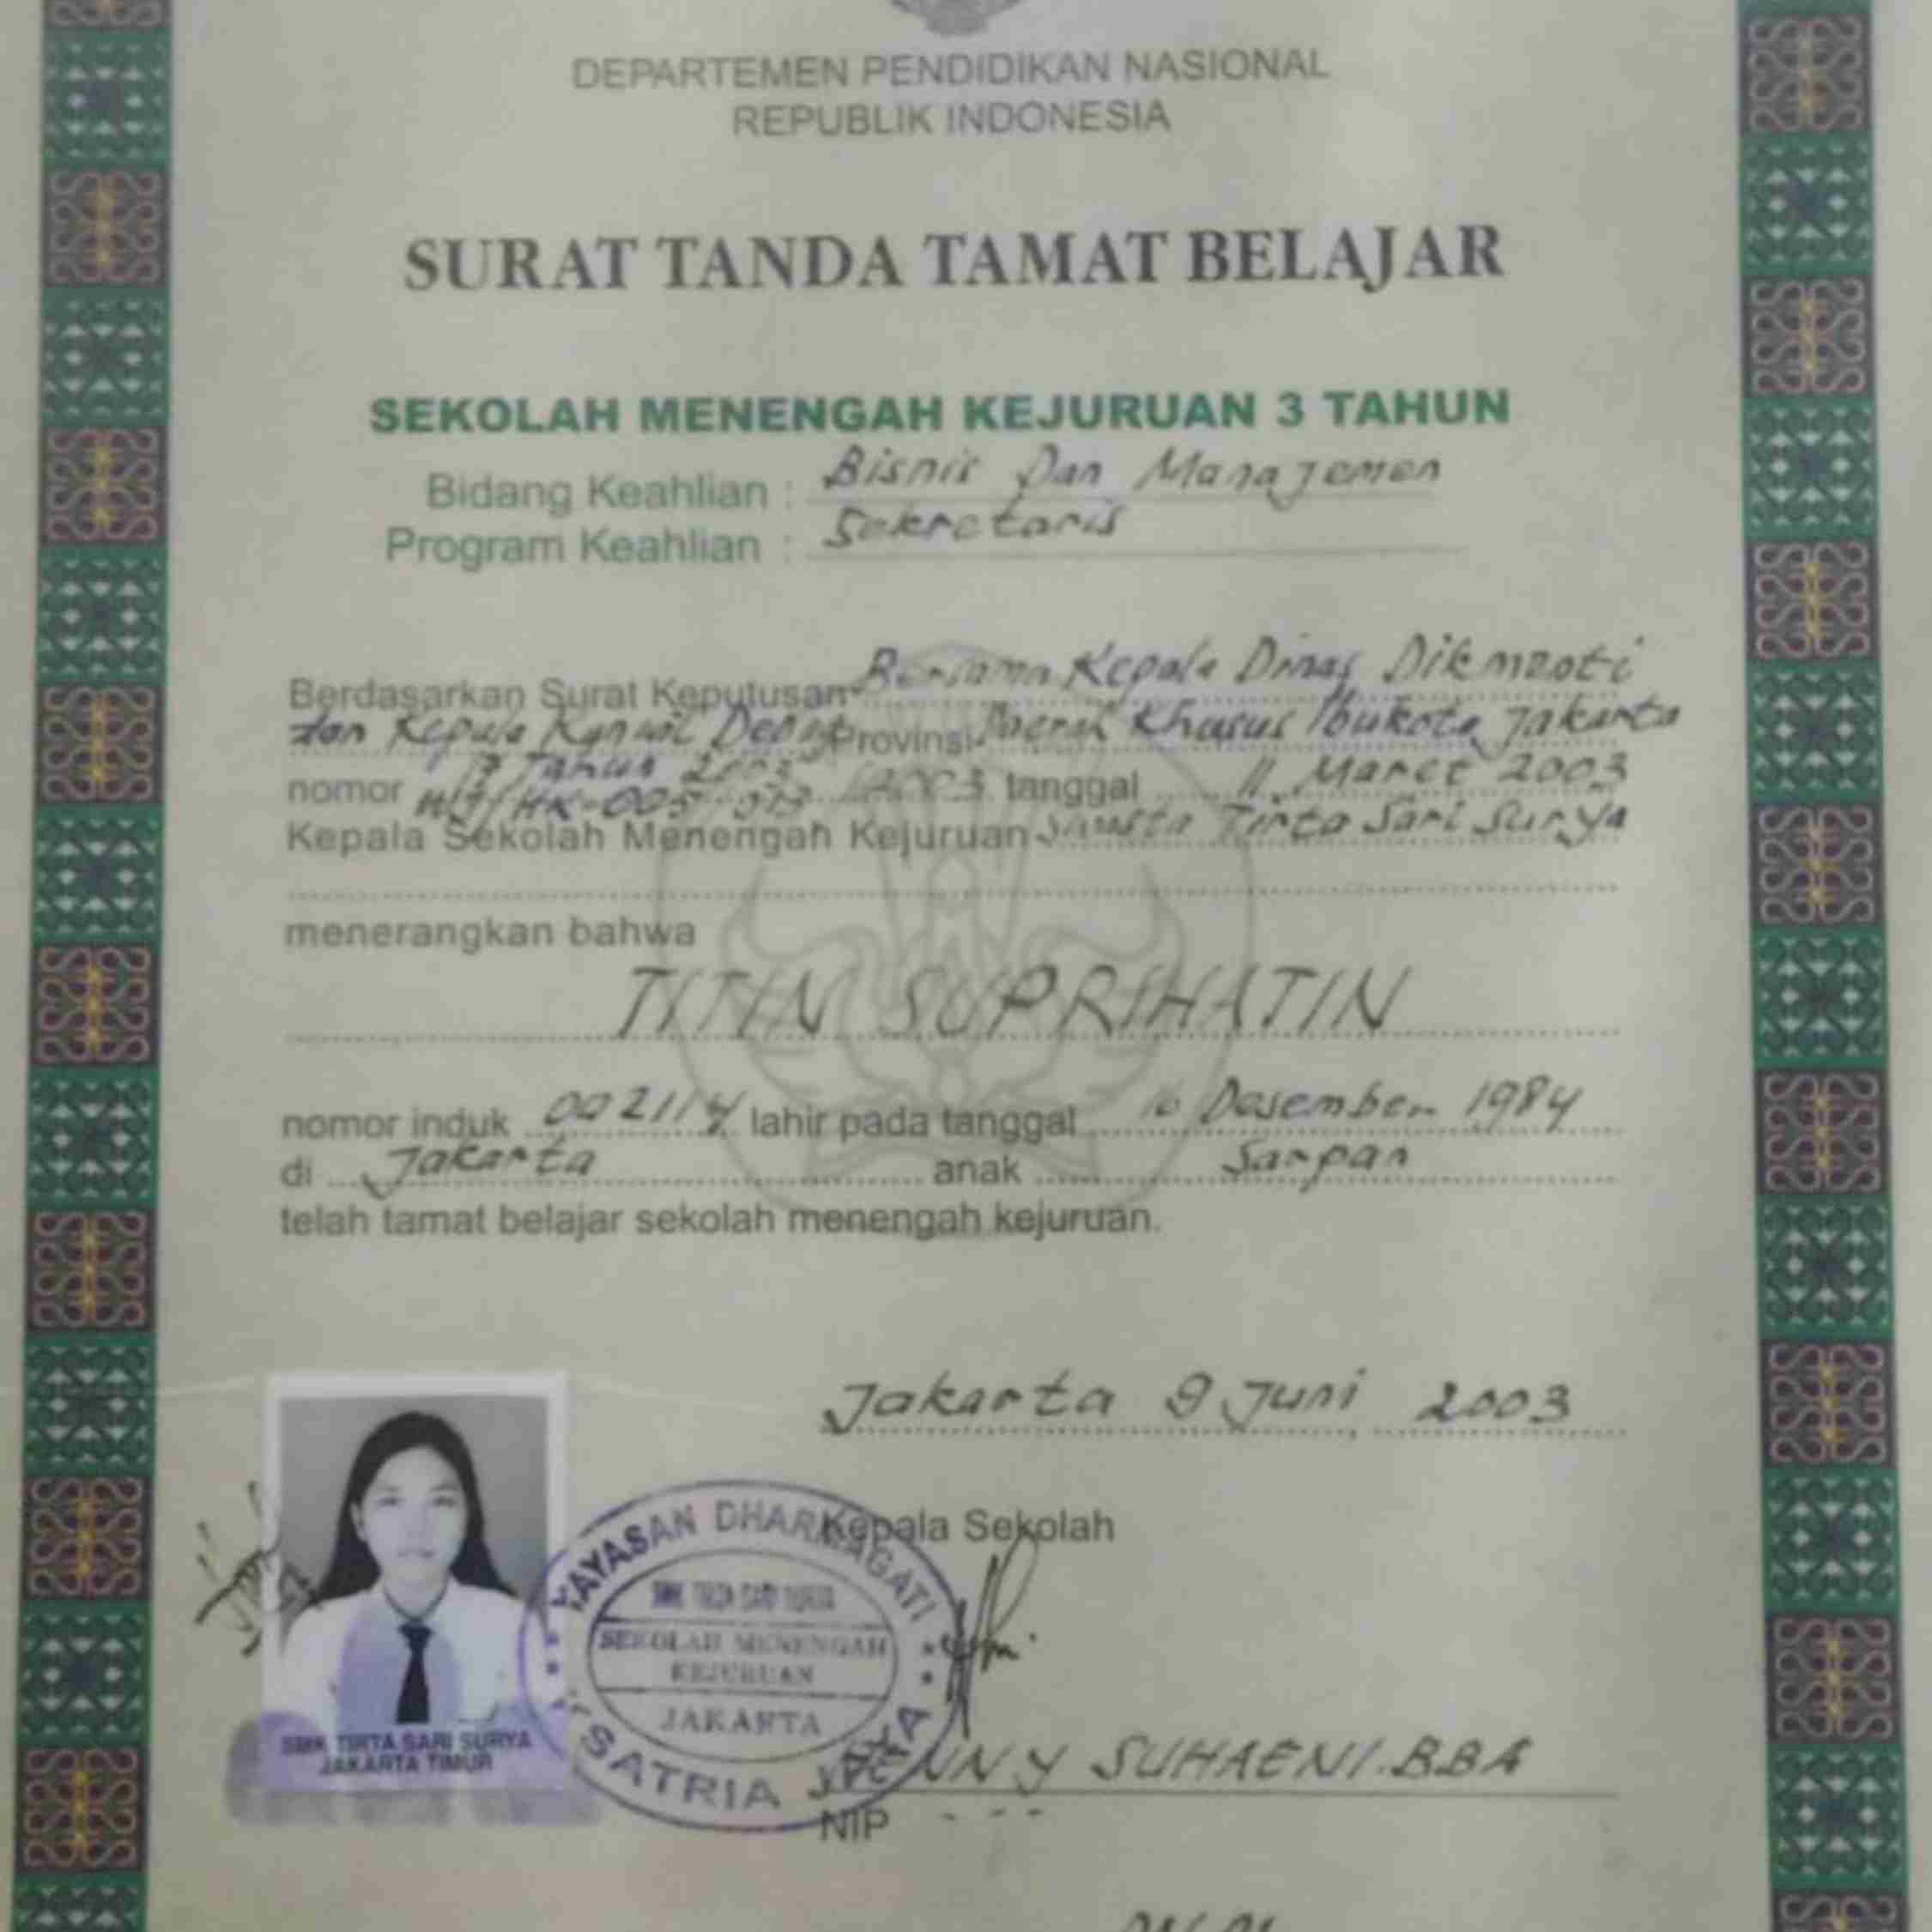 DEPARTEMEN PENDIDIKAN NASIONAL
REPUBLIK INDONESIA
SURAT TANDA TAMAT BELAJAR
SEKOLAH MENENGAH KEJURUAN 3 TAHUN
Bidang Keahlian : Bisnis Dan Manajemen
Program Keahlian : Sekretaris
Berdasarkan Surat Keputusan Bersama Kepala Dinas Dikmenti
dan Kepala Kanwil Depag Provinsi Daerah Khusus Ibukota Jakarta
17 Tahun 2003
nomor 2003 tanggal 11 Maret 2003
Kepala Sekolah Menengah Kejuruan Swasta Tirta Sari Surya
menerangkan bahwa
TITIN SUPRIHATIN
nomor induk 002114 lahir pada tanggal 16 Desember 1984
di Jakarta anak Sarpan
telah tamat belajar sekolah menengah kejuruan.
Jakarta 9 Juni 2003
Kepala Sekolah
YAYASAN DHARMAGATI
SMK TIRTA SARI SURYA
SEKOLAH MENENGAH
KEJURUAN
JAKARTA
KSATRIA JAYA
SMK TIRTA SARI SURYA
JAKARTA TIMUR
SUHAENI.BBA
NIP - - -